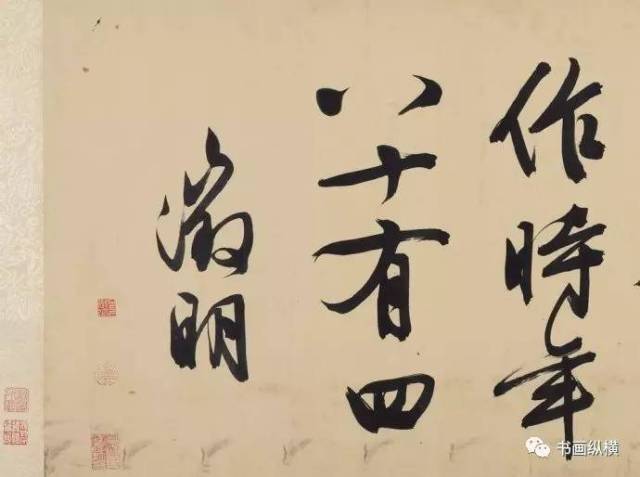 作時年
八十有四
徵明
书画纵横